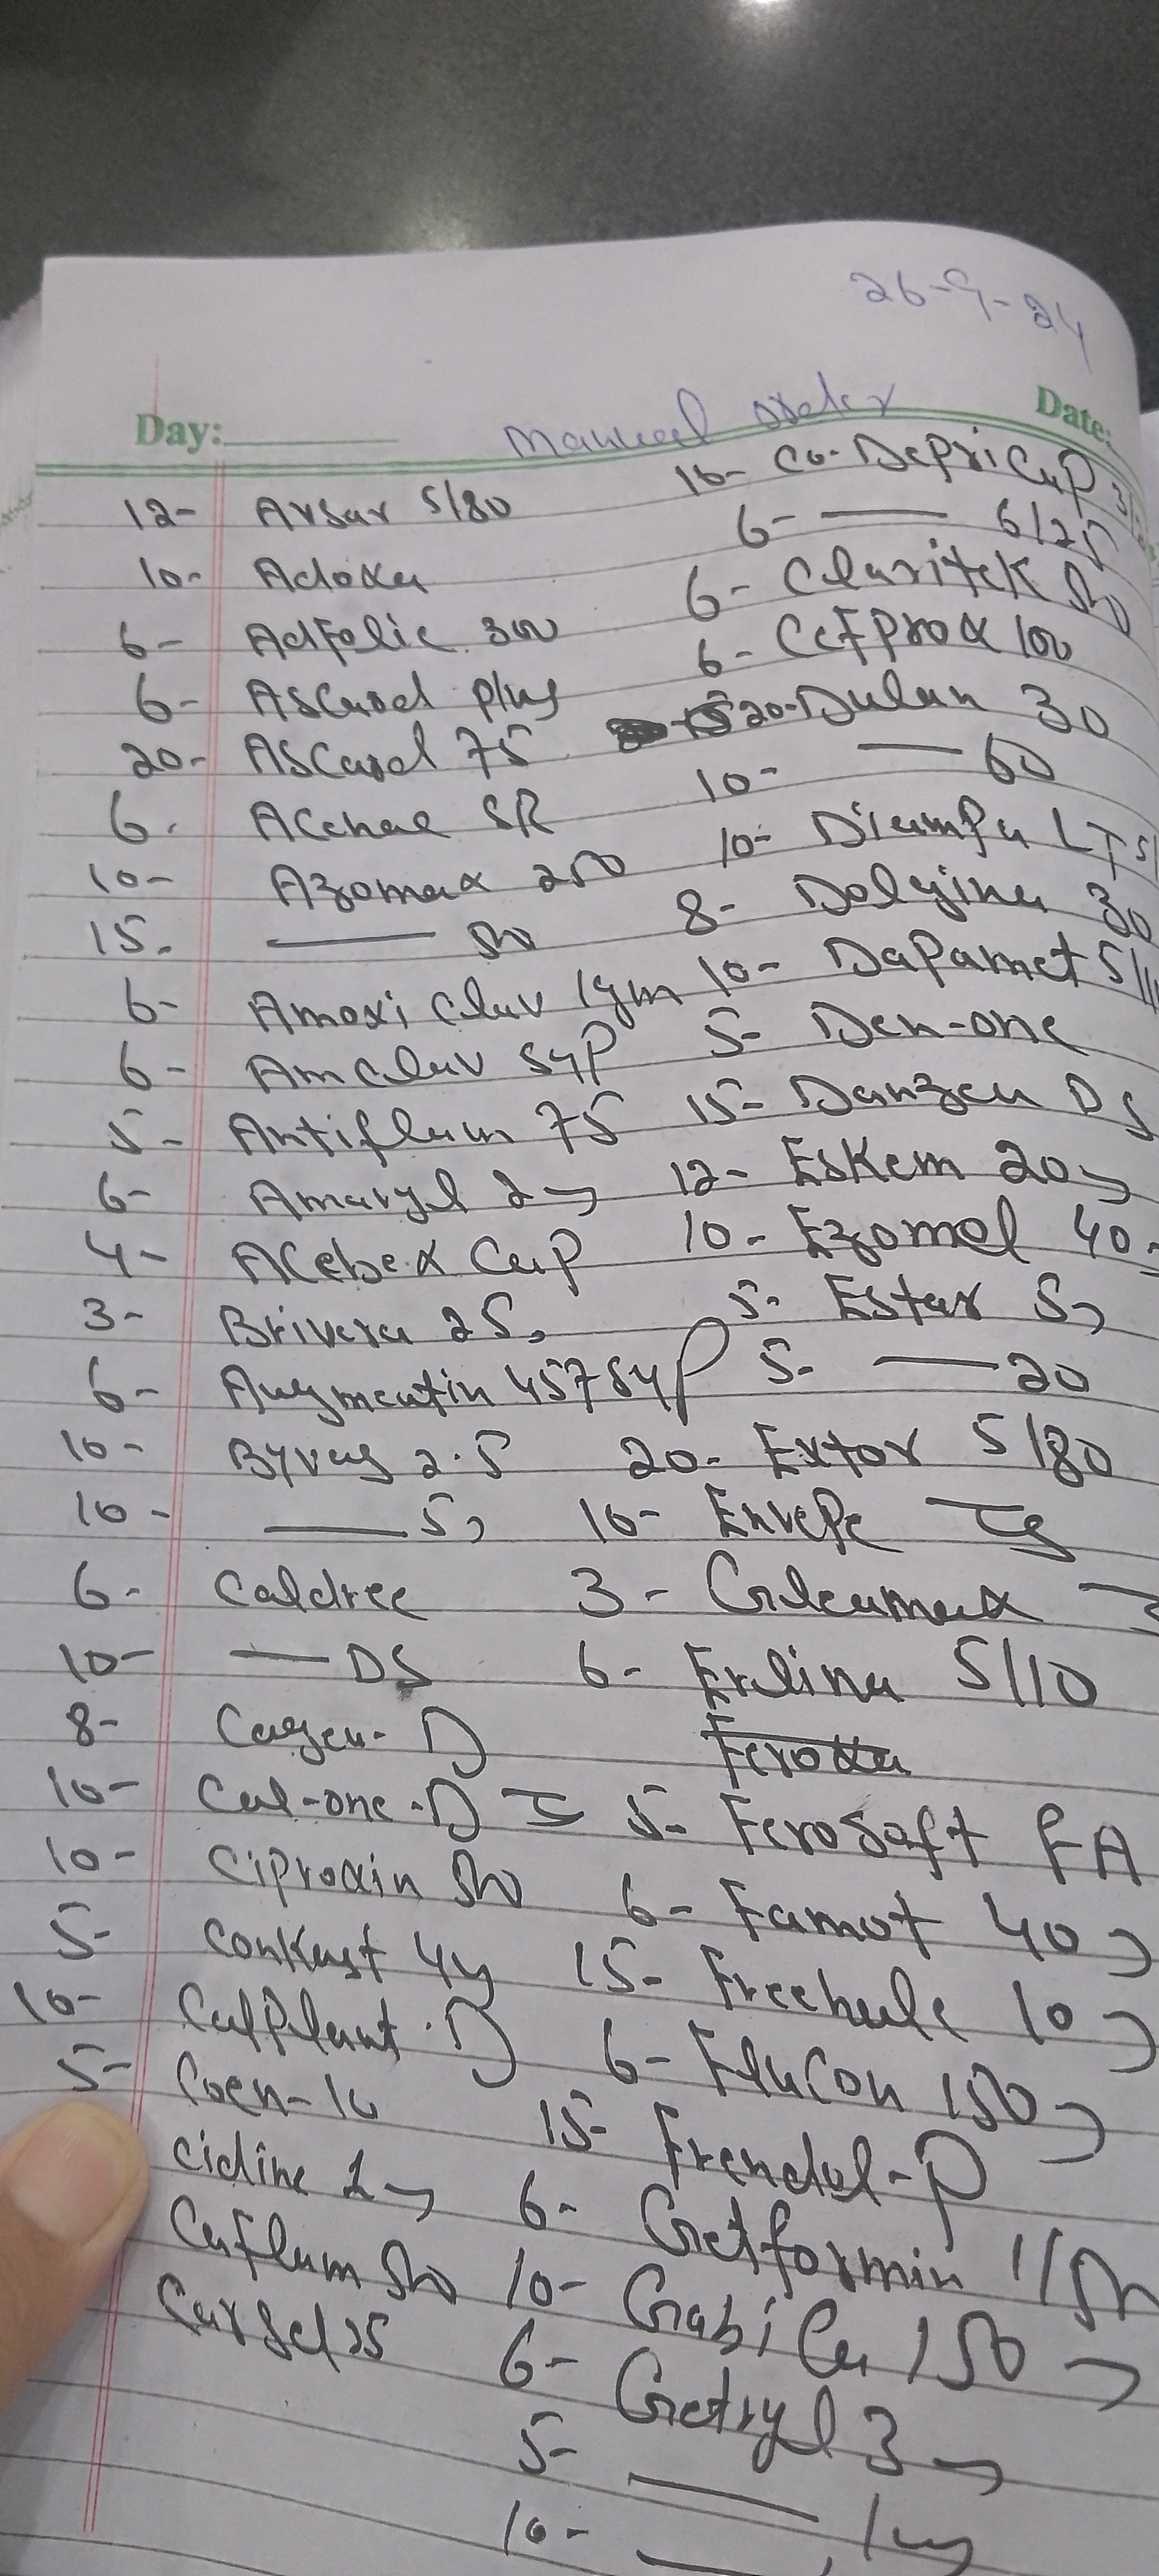 26-9-24
Day:
Manual order
Date:
12- Arsar 5/80
10- Adoxa
6- Adfolic 300
6- Ascard plus
20- AScard 75
6- ACenac SR
10- Azomax 250
15- —— 500
6- Amoxi Clav 1gm
6- Amclav syp
5- Antiflam 75
6- Amaryl 2
4- ACebex Cap
3- Brivera 25
6- Augmentin 457 Syp
10- Byvas 2.5
10- —— 5
6- Caldree
10- —— DS
8- Cagen-D
10- Cal-one-D
10- Ciproxin 500
5- Conkast 4mg
10- Calplant-D
5- Coen-10
Cidine 1
Caflam 50
Carsel 25
10- Co-Depricap 3/
6- —— 6/25
6- Claritek 500
6- Cefprox 100
20- Dulan 30
10- —— 60
10- Diampa LTS
8- Dolgina 30
10- Dapamet 5/
5- Den-one
15- Danzen DS
12- Eskem 20
10- Ezomol 40
5- Estar 5
5- —— 20
20- Extor 5/80
10- Envepe
3- Gleamax
6- Erlina 5/10
Feroxa
5- Ferosoft FA
6- Famot 40
15- Freehale 10
6- Flucon 150
15- Frendol-P
6- Getformin 1/500
10- Gabica 150
6- Getryl 3
5- ——
10- —— 1mg